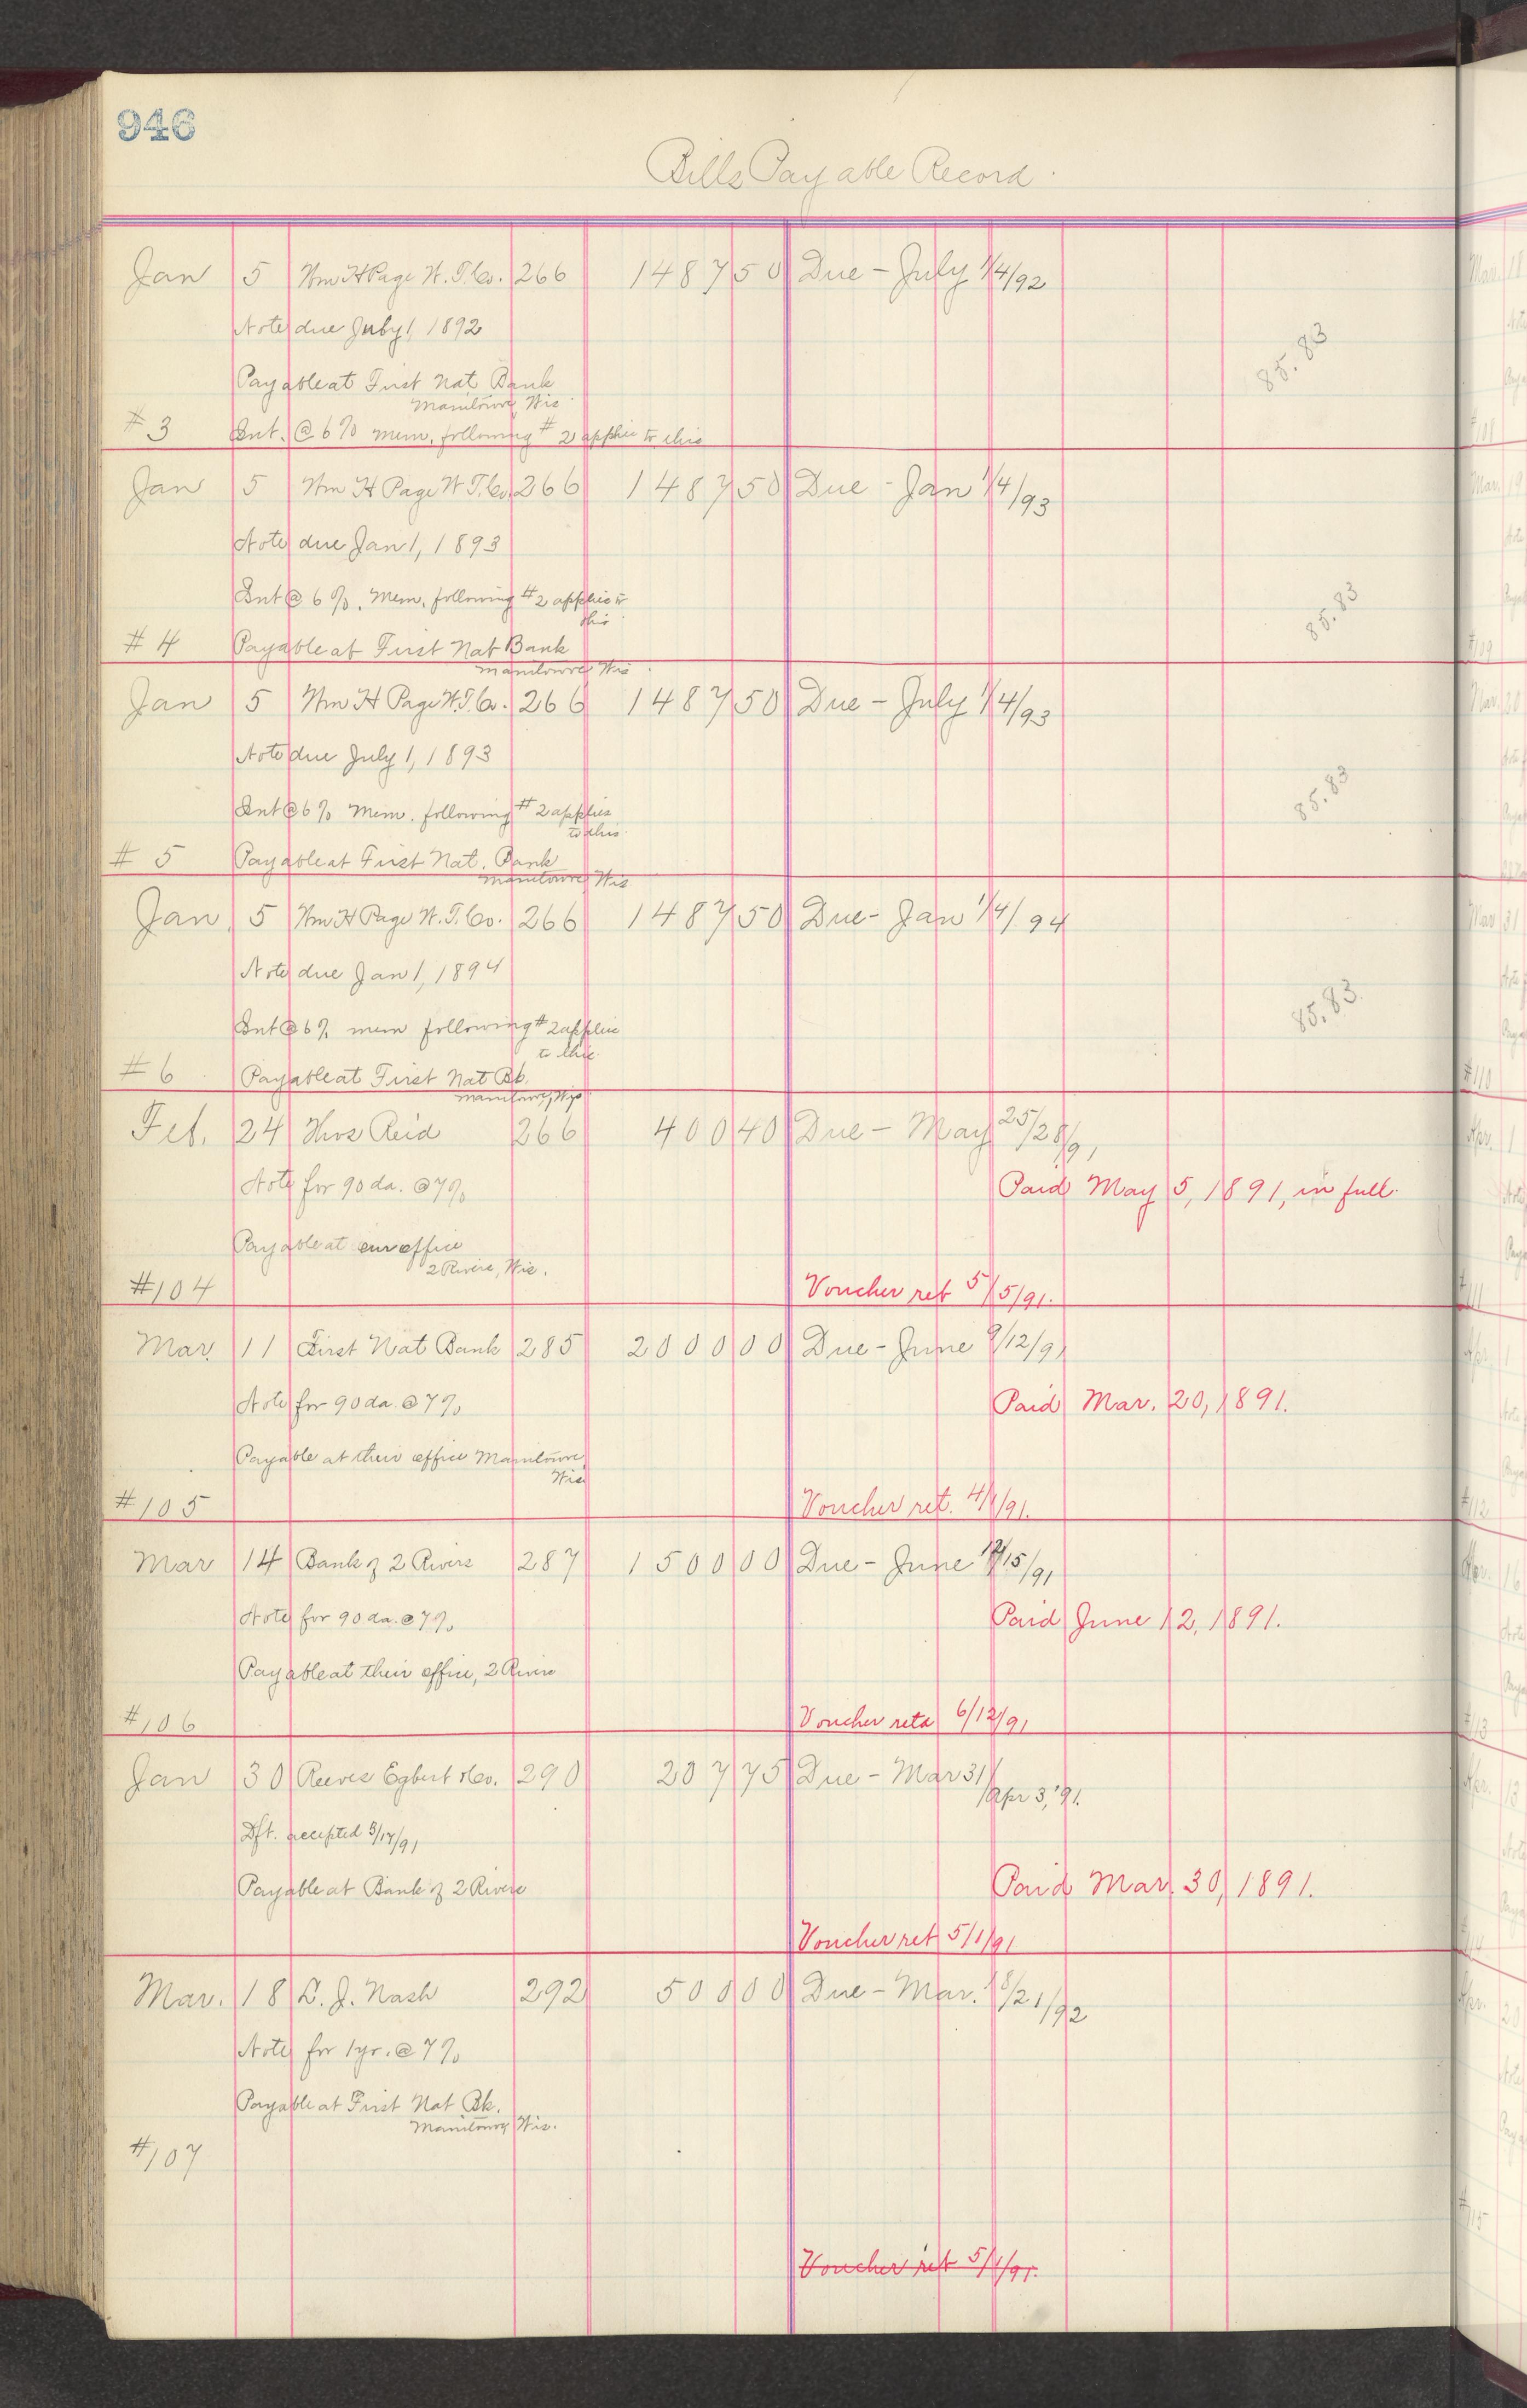 946
Bills Payable Record.
Jan 5 Wm H Page W. T. Co. 266 1487 50 Due - July 1/4/92
Note due July 1, 1892
85.83
Payable at First Nat Bank
Manitowoc, Wis
#3 Int. @ 6% mem. following #2 applies to this
Jan 5 Wm H Page W T. Co. 266 1487 50 Due - Jan 1/4/93
Note due Jan 1, 1893
Int @ 6%. Mem. following #2 applies to
this
85.83
#4 Payable at First Nat Bank
Manitowoc Wis.
Jan 5 Wm H Page W. T. Co. 266 1487 50 Due - July 1/4/93
Note due July 1, 1893
85.83
Int @ 6% Mem. following #2 applies
to this.
#5 Payable at First Nat. Bank
Manitowoc Wis
Jan 5 Wm H Page W. T. Co. 266 1487 50 Due - Jan 1/4/94
Note due Jan 1, 1894
85.83.
Int @ 6% mem following #2 applies
to this.
#6 Payable at First Nat Bk.
Manitowoc, Wis
Feb. 24 Thos Reid 266 400 40 Due - May 25/28/91
Note for 90 da. @ 7%
Paid May 5, 1891, in full.
Payable at our office
2 Rivers, Wis.
#104 Voucher ret 5/5/91.
Mar. 11 First Nat Bank 285 2000 00 Due - June 9/12/91
Note for 90 da. @ 7%
Paid Mar. 20, 1891.
Payable at their office Manitowoc
Wis
#105 Voucher ret. 4/1/91.
Mar 14 Bank of 2 Rivers 287 1500 00 Due - June 12/15/91
Note for 90 da. @ 7%
Paid June 12, 1891.
Payable at their office, 2 Rivers
#106 Voucher retd 6/12/91
Jan 30 Reeves Egbert & Co. 290 207 75 Due - Mar 31/
Apr 3, '91.
Dft. accepted 3/17/91
Payable at Bank of 2 Rivers
Paid Mar. 30, 1891.
Voucher ret 5/1/91
Mar. 18 L. J. Nash 292 500 00 Due - Mar. 18/21/92
Note for 1 yr. @ 7%
Payable at First Nat Bk.
Manitowoc Wis.
#107
Voucher ret 5/1/91.